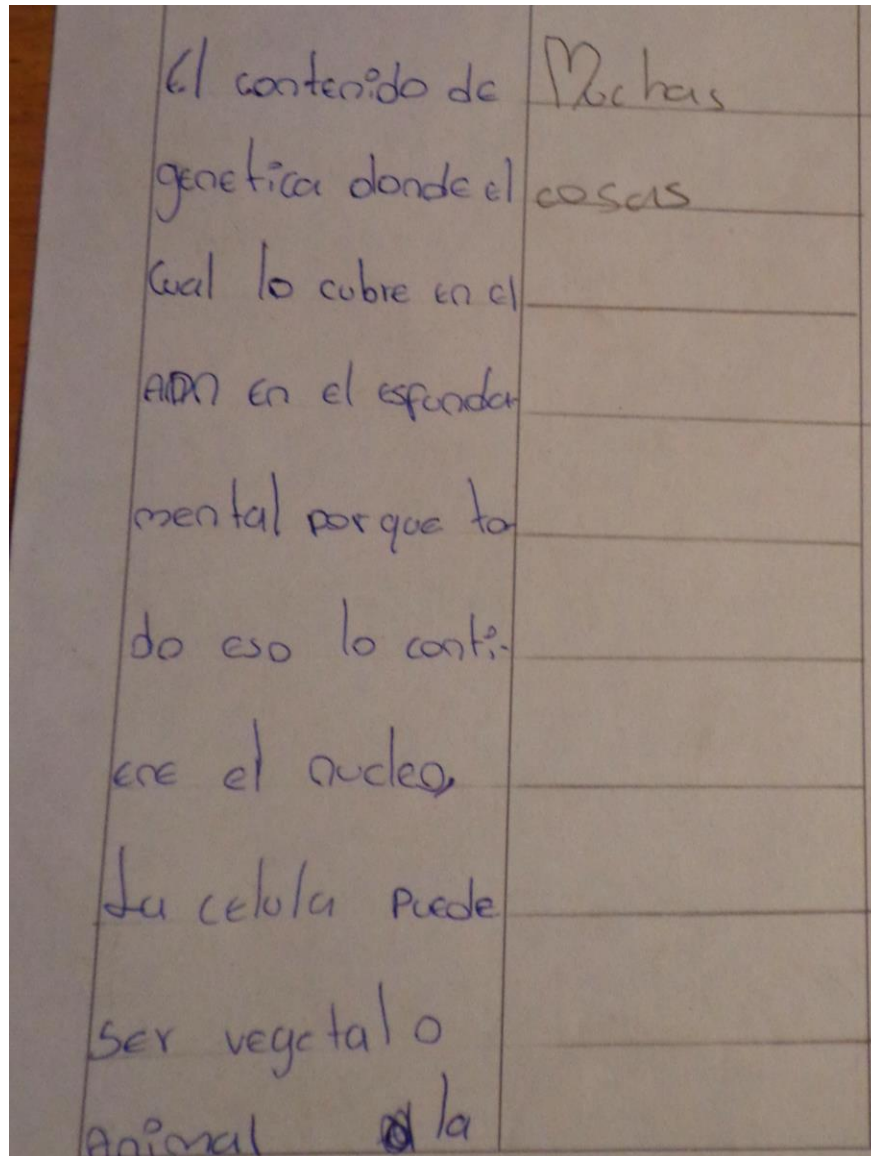 El contenido de
genetica donde el
cual lo cubre en el
ADN en el esfunda
mental porque to
do eso lo conti-
ene el nucleo,
La celula puede
ser vegetal o
Animal la
Muchas
cosas